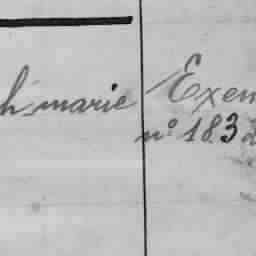 h marie Exem
n° 183